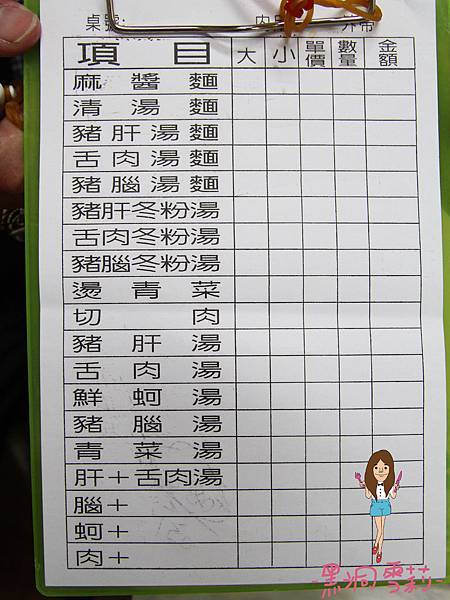 桌號:
項目 大 小 單價 數量 金額
麻醬麵
清湯麵
豬肝湯麵
舌肉湯麵
豬腦湯麵
豬肝冬粉湯
舌肉冬粉湯
豬腦冬粉湯
燙青菜
切肉
豬肝湯
舌肉湯
鮮蚵湯
豬腦湯
青菜湯
肝+舌肉湯
腦+
蚵+
肉+
黑洞雪莉